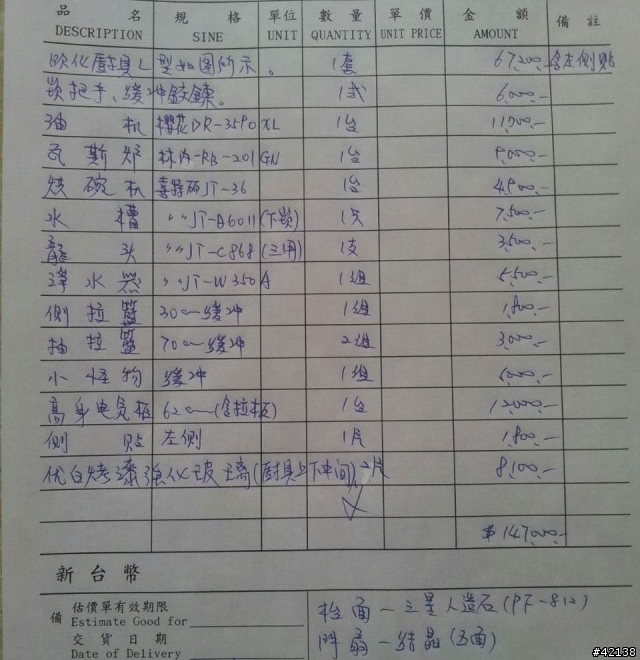 品 名 規 格 單位 數 量 單 價 金 額 備 註
DESCRIPTION SINE UNIT QUANTITY UNIT PRICE AMOUNT
欧化廚具L型如图所示。 1套 67,200.- 含左側貼
崁把手、緩冲鉸鍊。 1式 6,000.-
油 机 櫻花DR-3590XL 1台
瓦斯炉 林内-RB-201GN 1台
烘碗机 喜特丽JT-36 1台 4,900.-
水 槽 〃JT-B6011(下崁) 1只 7,500.-
龍 头 〃JT-C868(三用) 1支 3,500.-
淨水器 〃JT-W350A 1組 5,500.-
側拉籃 30cm緩冲 1組 1,800.-
抽拉籃 70cm緩冲 2組 3,000.-
小怪物 緩冲 1組
高身电気柜 62cm(含拉板) 1台 12,000.-
側 貼 左側 1片 1,800.-
优白烤漆強化玻璃(廚具上下中间) 2片 8,100.-
$147,000.-
新 台 幣
備 估價單有效期限
Estimate Good for
交 貨 日 期
Date of Delivery
枱面-三星人造石(PF-812)
門扇-结晶(五面)
#42138